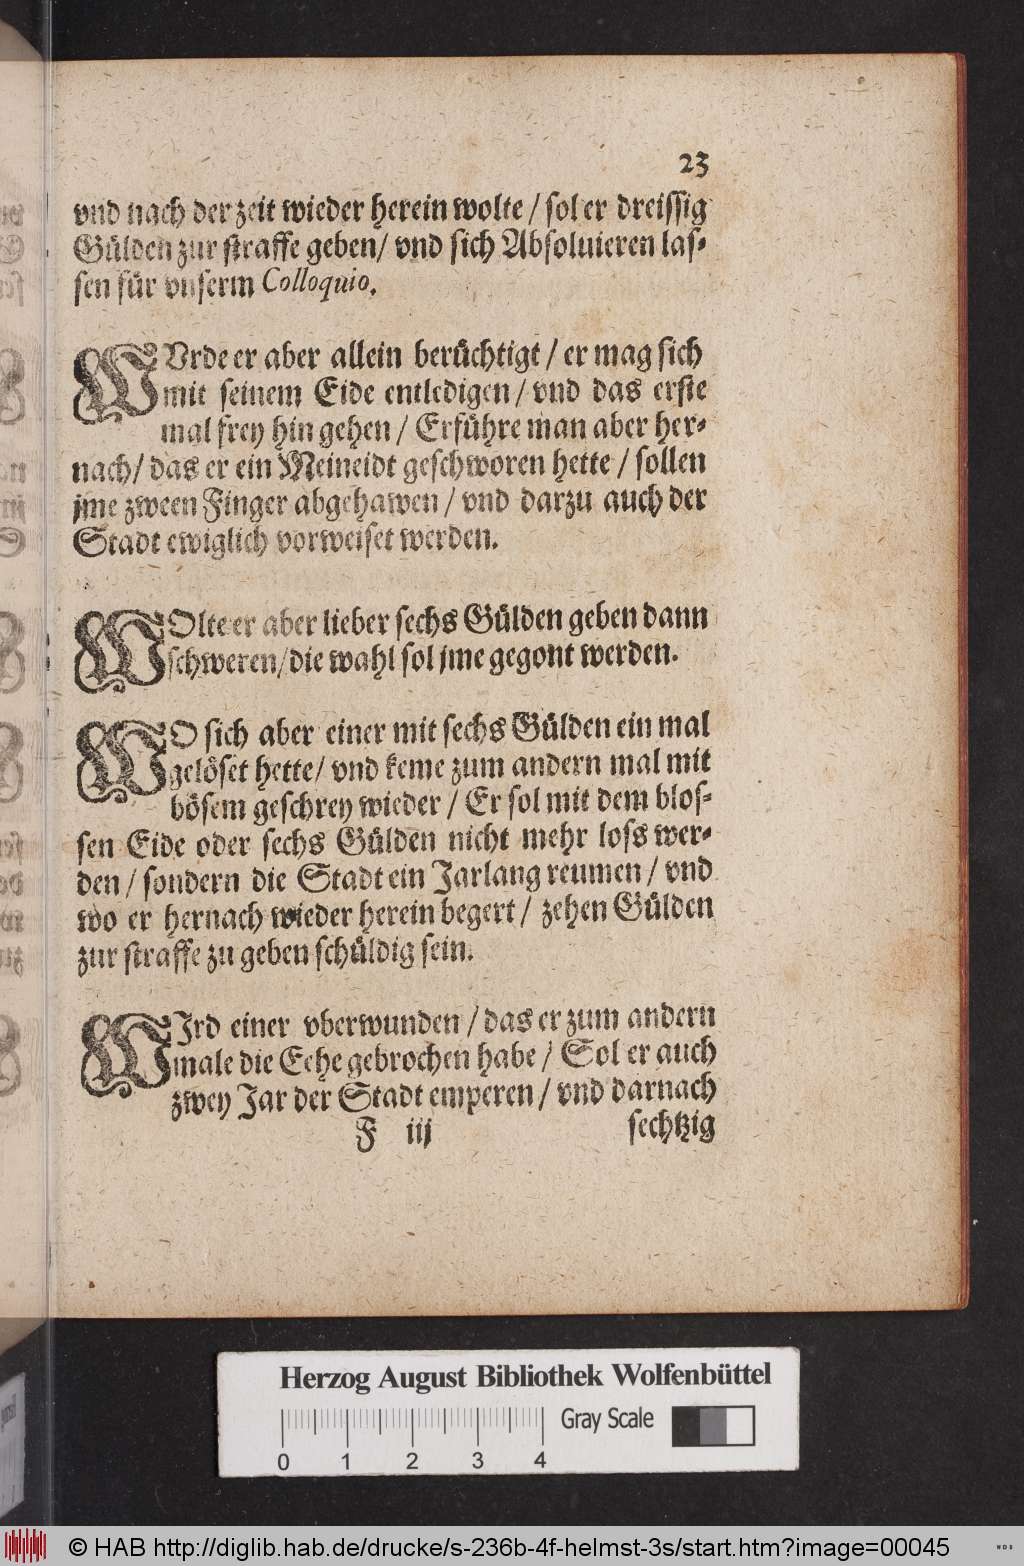 23
vnd nach der zeit wieder herein wolte / sol er dreissig
Gülden zur straffe geben / vnd sich Absoluieren las-
sen für vnserm Colloquio.
WVrde er aber allein berüchtigt / er mag sich
mit seinem Eide entledigen / vnd das erste
mal frey hin gehen / Erführe man aber her-
nach / das er ein Meineidt geschworen hette / sollen
jme zween Finger abgehawen / vnd darzu auch der
Stadt ewiglich vorweiset werden.
WOlte er aber lieber sechs Gülden geben dann
schweren / die wahl sol jme gegont werden.
WO sich aber einer mit sechs Gülden ein mal
gelöset hette / vnd keme zum andern mal mit
bösem geschrey wieder / Er sol mit dem blos-
sen Eide oder sechs Gülden nicht mehr loss wer-
den / sondern die Stadt ein Jarlang reumen / vnd
wo er hernach wieder herein begert / zehen Gülden
zur straffe zu geben schüldig sein.
WJrd einer vberwunden / das er zum andern
male die Eehe gebrochen habe / Sol er auch
zwey Jar der Stadt emperen / vnd darnach
F iij sechtzig
Herzog August Bibliothek Wolfenbüttel
Gray Scale
0 1 2 3 4
© HAB http://diglib.hab.de/drucke/s-236b-4f-helmst-3s/start.htm?image=00045